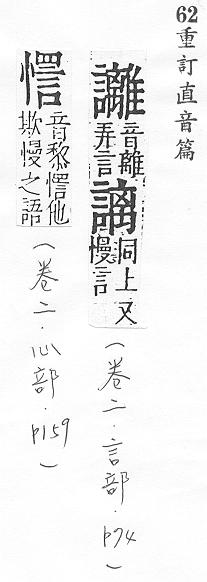 62重訂直音篇
音離弄言謧同上又慢言
(卷二.言部.p74)
音黎他欺慢之語
(卷二.心部.p159)